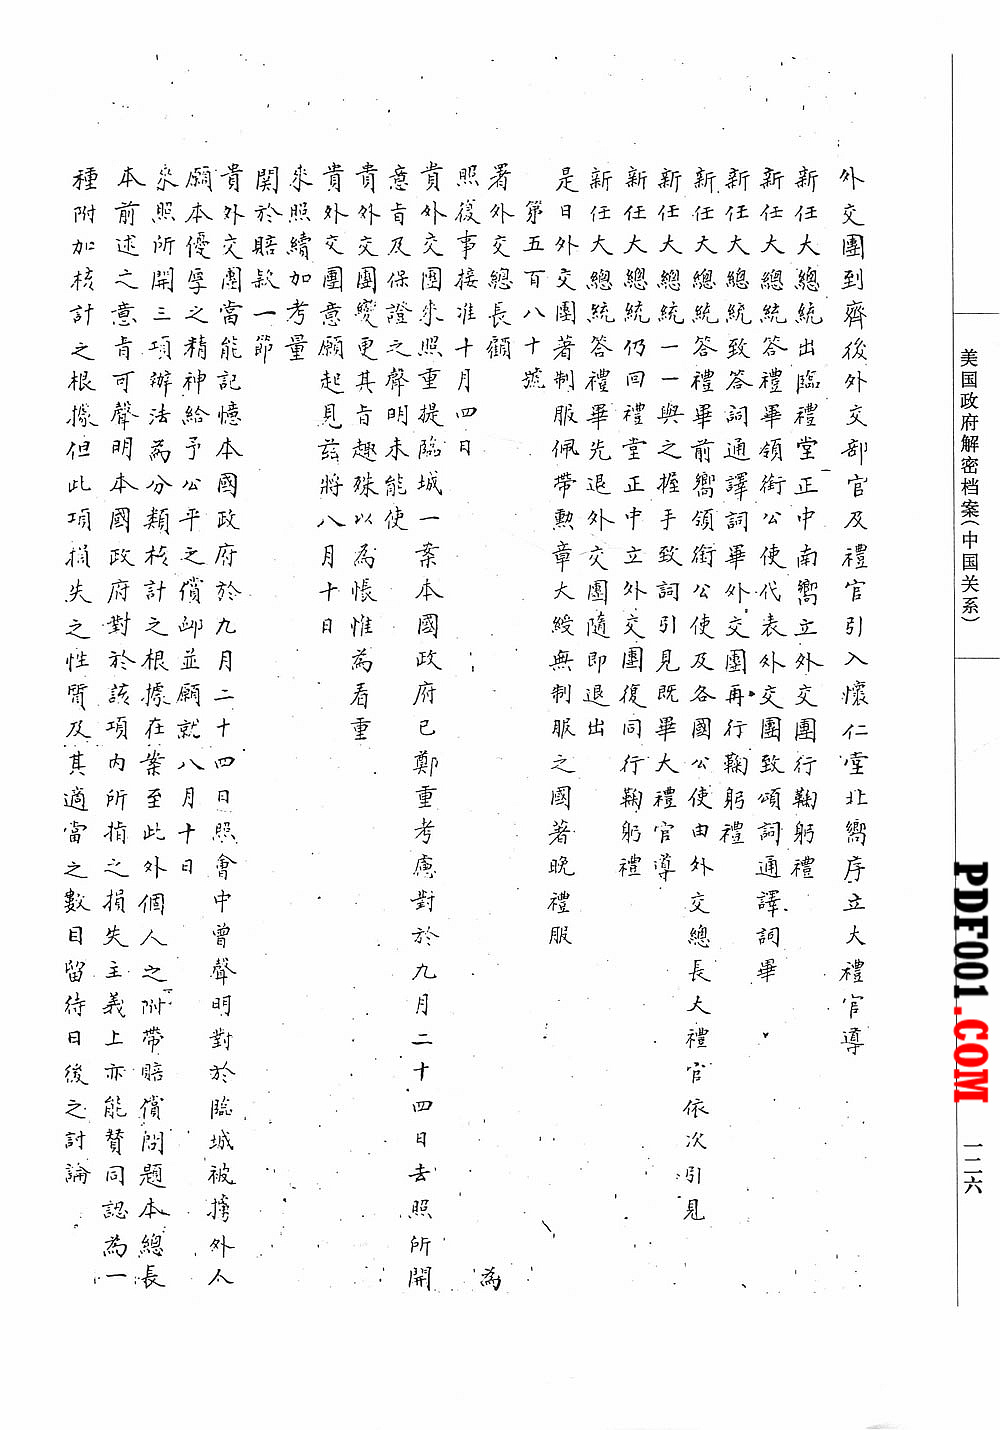 美国政府解密档案(中国关系)
一二六
PDF001.COM
外交團到齊後外交部官及禮官引入懷仁堂北嚮序立大禮官導
新任大總統出臨禮堂正中南嚮立外交團行鞠躬禮
新任大總統答禮畢領銜公使代表外交團致頌詞通譯詞畢
新任大總統致答詞通譯詞畢外交團再行鞠躬禮
新任大總統答禮畢前嚮領銜公使及各國公使由外交總長大禮官依次引見
新任大總統一一與之握手致詞引見既畢大禮官導
新任大總統仍回禮堂正中立外交團復同行鞠躬禮
新任大總統答禮畢先退外交團隨即退出
是日外交團著制服佩帶勳章大綬無制服之國著晚禮服
第五百八十號
署外交總長顧
為
照復事接准十月四日
貴外交團來照重提臨城一案本國政府已鄭重考慮對於九月二十四日去照所開
意旨及保證之聲明未能使
貴外交團變更其旨趣殊以為悵惟為看重
貴外交團意願起見茲將八月十日
來照續加考量
関於賠款一節
貴外交團當能記憶本國政府於九月二十四日照會中曾聲明對於臨城被擄外人
願本優厚之精神給予公平之償卹並願就八月十日
來照所開三項辦法為分類核計之根據在案至此外個人之附帶賠償問題本總長
本前述之意旨可聲明本國政府對於該項內所指之損失主義上亦能贊同認為一
種附加核計之根據但此項損失之性質及其適當之數目留待日後之討論